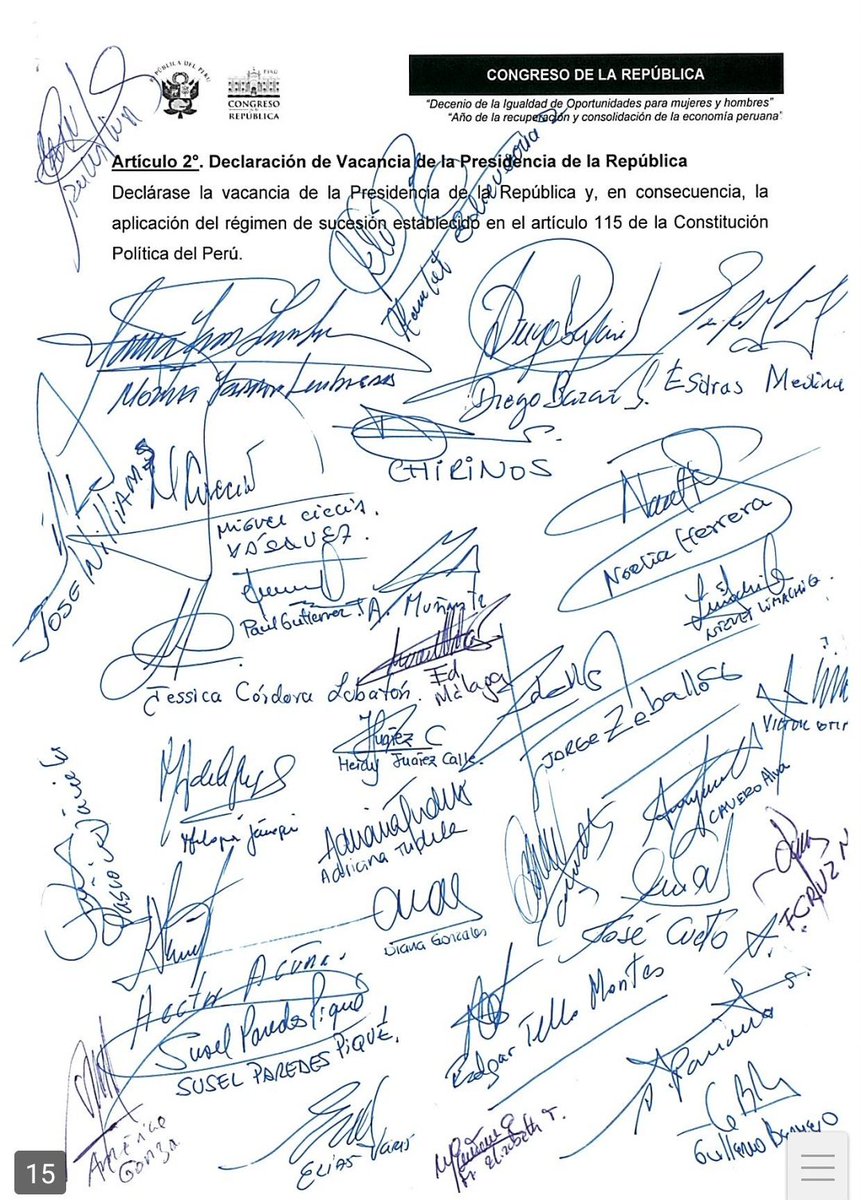 REPÚBLICA DEL PERÚ
PERÚ
CONGRESO
DE LA
REPÚBLICA
CONGRESO DE LA REPÚBLICA
“Decenio de la Igualdad de Oportunidades para mujeres y hombres”
“Año de la recuperación y consolidación de la economía peruana”
Artículo 2°. Declaración de Vacancia de la Presidencia de la República
Declárase la vacancia de la Presidencia de la República y, en consecuencia, la
aplicación del régimen de sucesión establecido en el artículo 115 de la Constitución
Política del Perú.
Hamlet Echeverría
Diego Bazán S.
Esdras Medina
CHIRINOS
JOSE WILLIAMS
MIGUEL CICCIA
VÁSQUEZ.
Noelia Herrera
Paul Gutierrez
A. Muñante
NIEVES LIMACHI Q.
Jessica Córdova Lobatón.
Ed.
Málaga
JORGE Zeballos
VICTOR
Heidy Juárez Calle.
Adriana Tudela
Adriana Tudela
CAVERO Alva
Diana Gonzales
José Cueto
Héctor Acuña.
Susel Paredes Piqué
SUSEL PAREDES PIQUÉ.
Edgar Tello Montes
Américo
Gonza
ELIAS
Elizabeth T.
Guillermo Bermejo
15